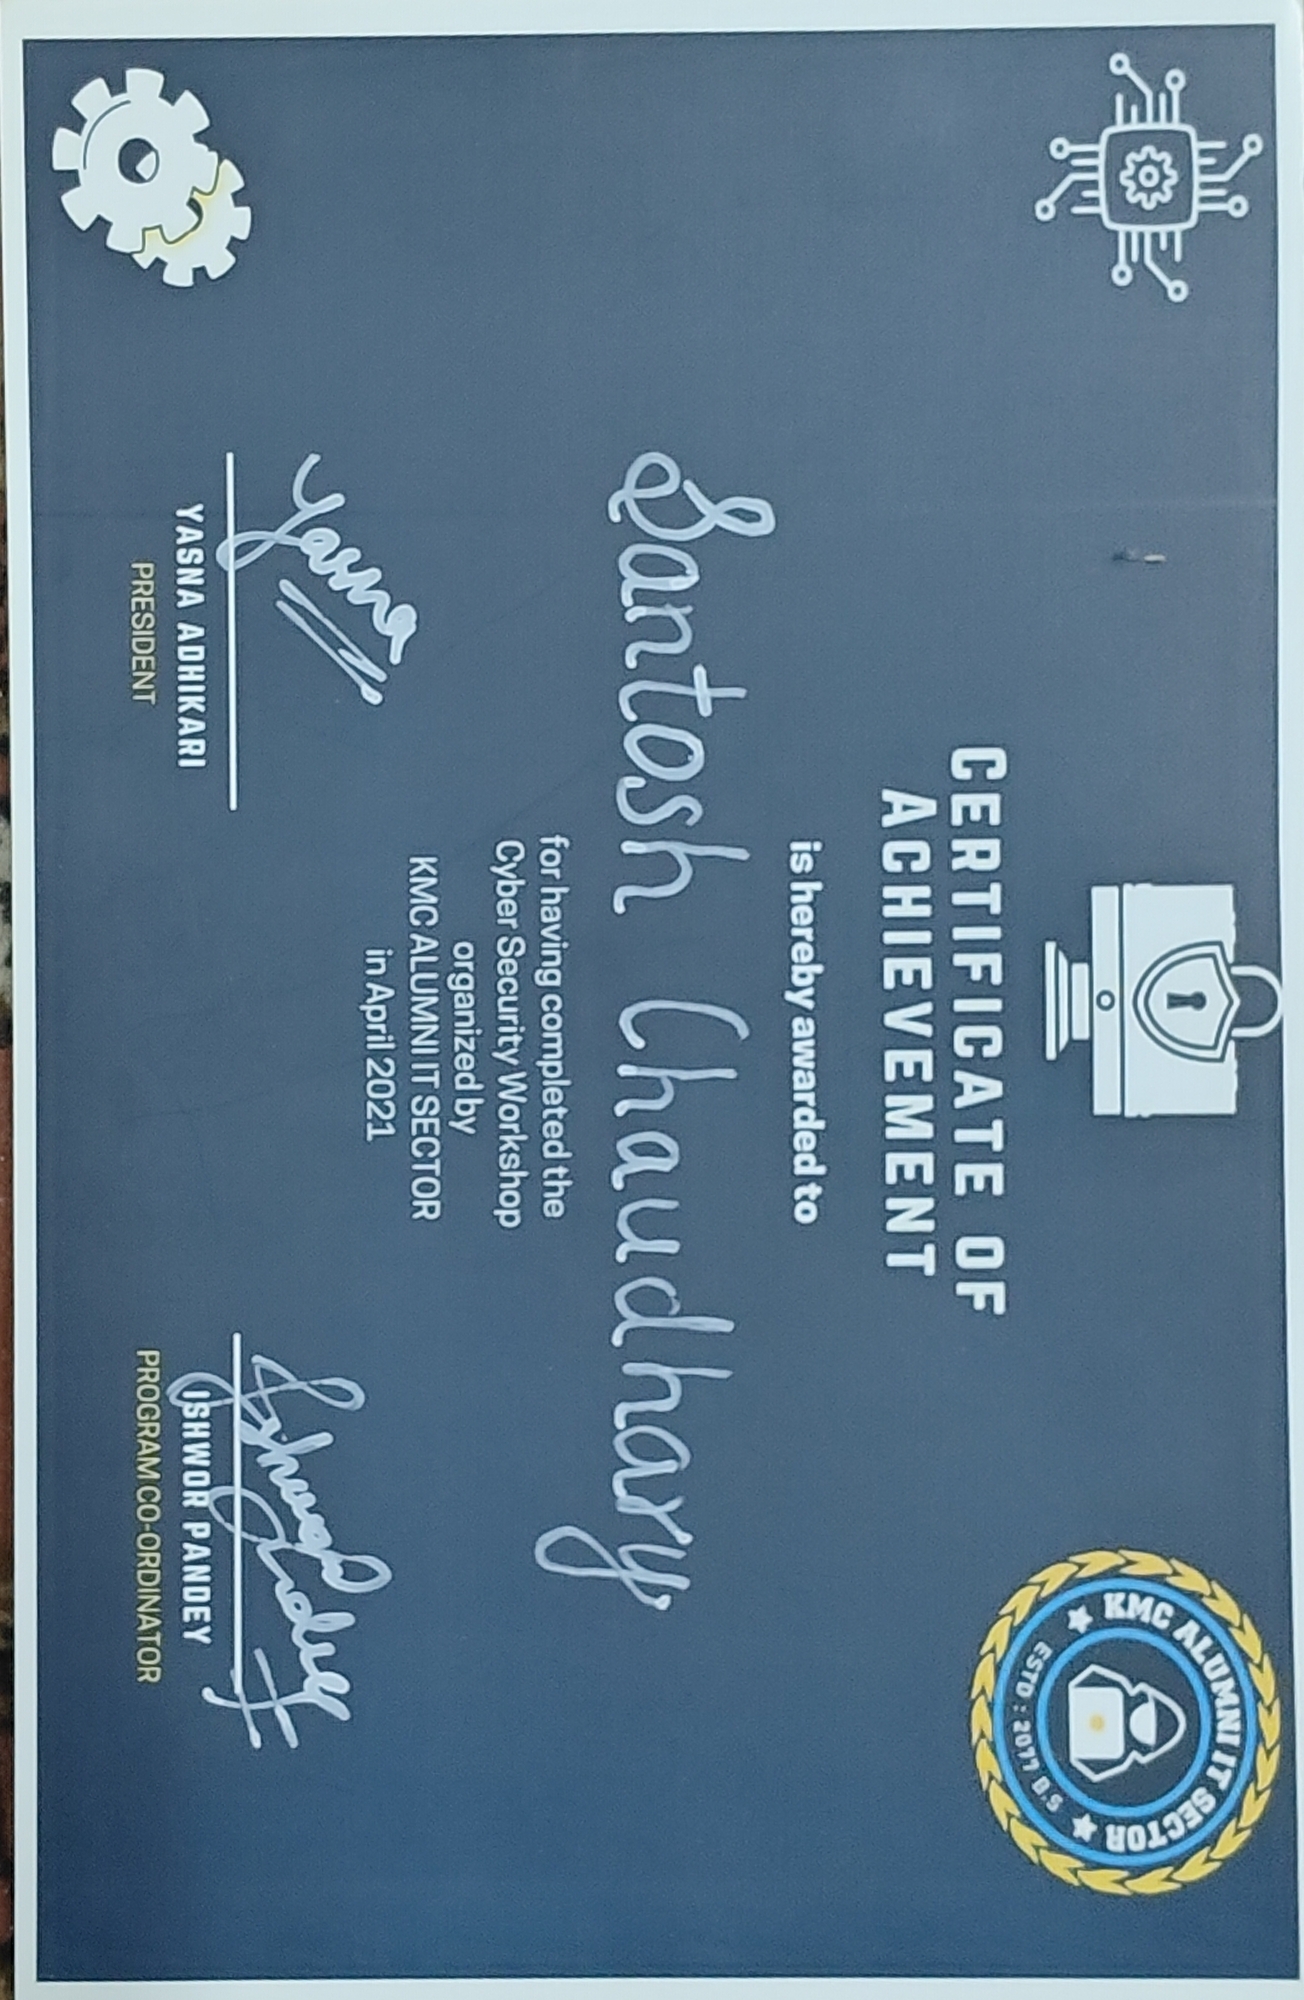 KMC ALUMNI IT SECTOR
ESTD : 2077 B.S
CERTIFICATE OF
ACHIEVEMENT
is hereby awarded to
Santosh Chaudhary
for having completed the
Cyber Security Workshop
organized by
KMC ALUMNI IT SECTOR
in April 2021
Yasna
Ishwor Pandey
YASNA ADHIKARI
ISHWOR PANDEY
PRESIDENT
PROGRAM CO-ORDINATOR